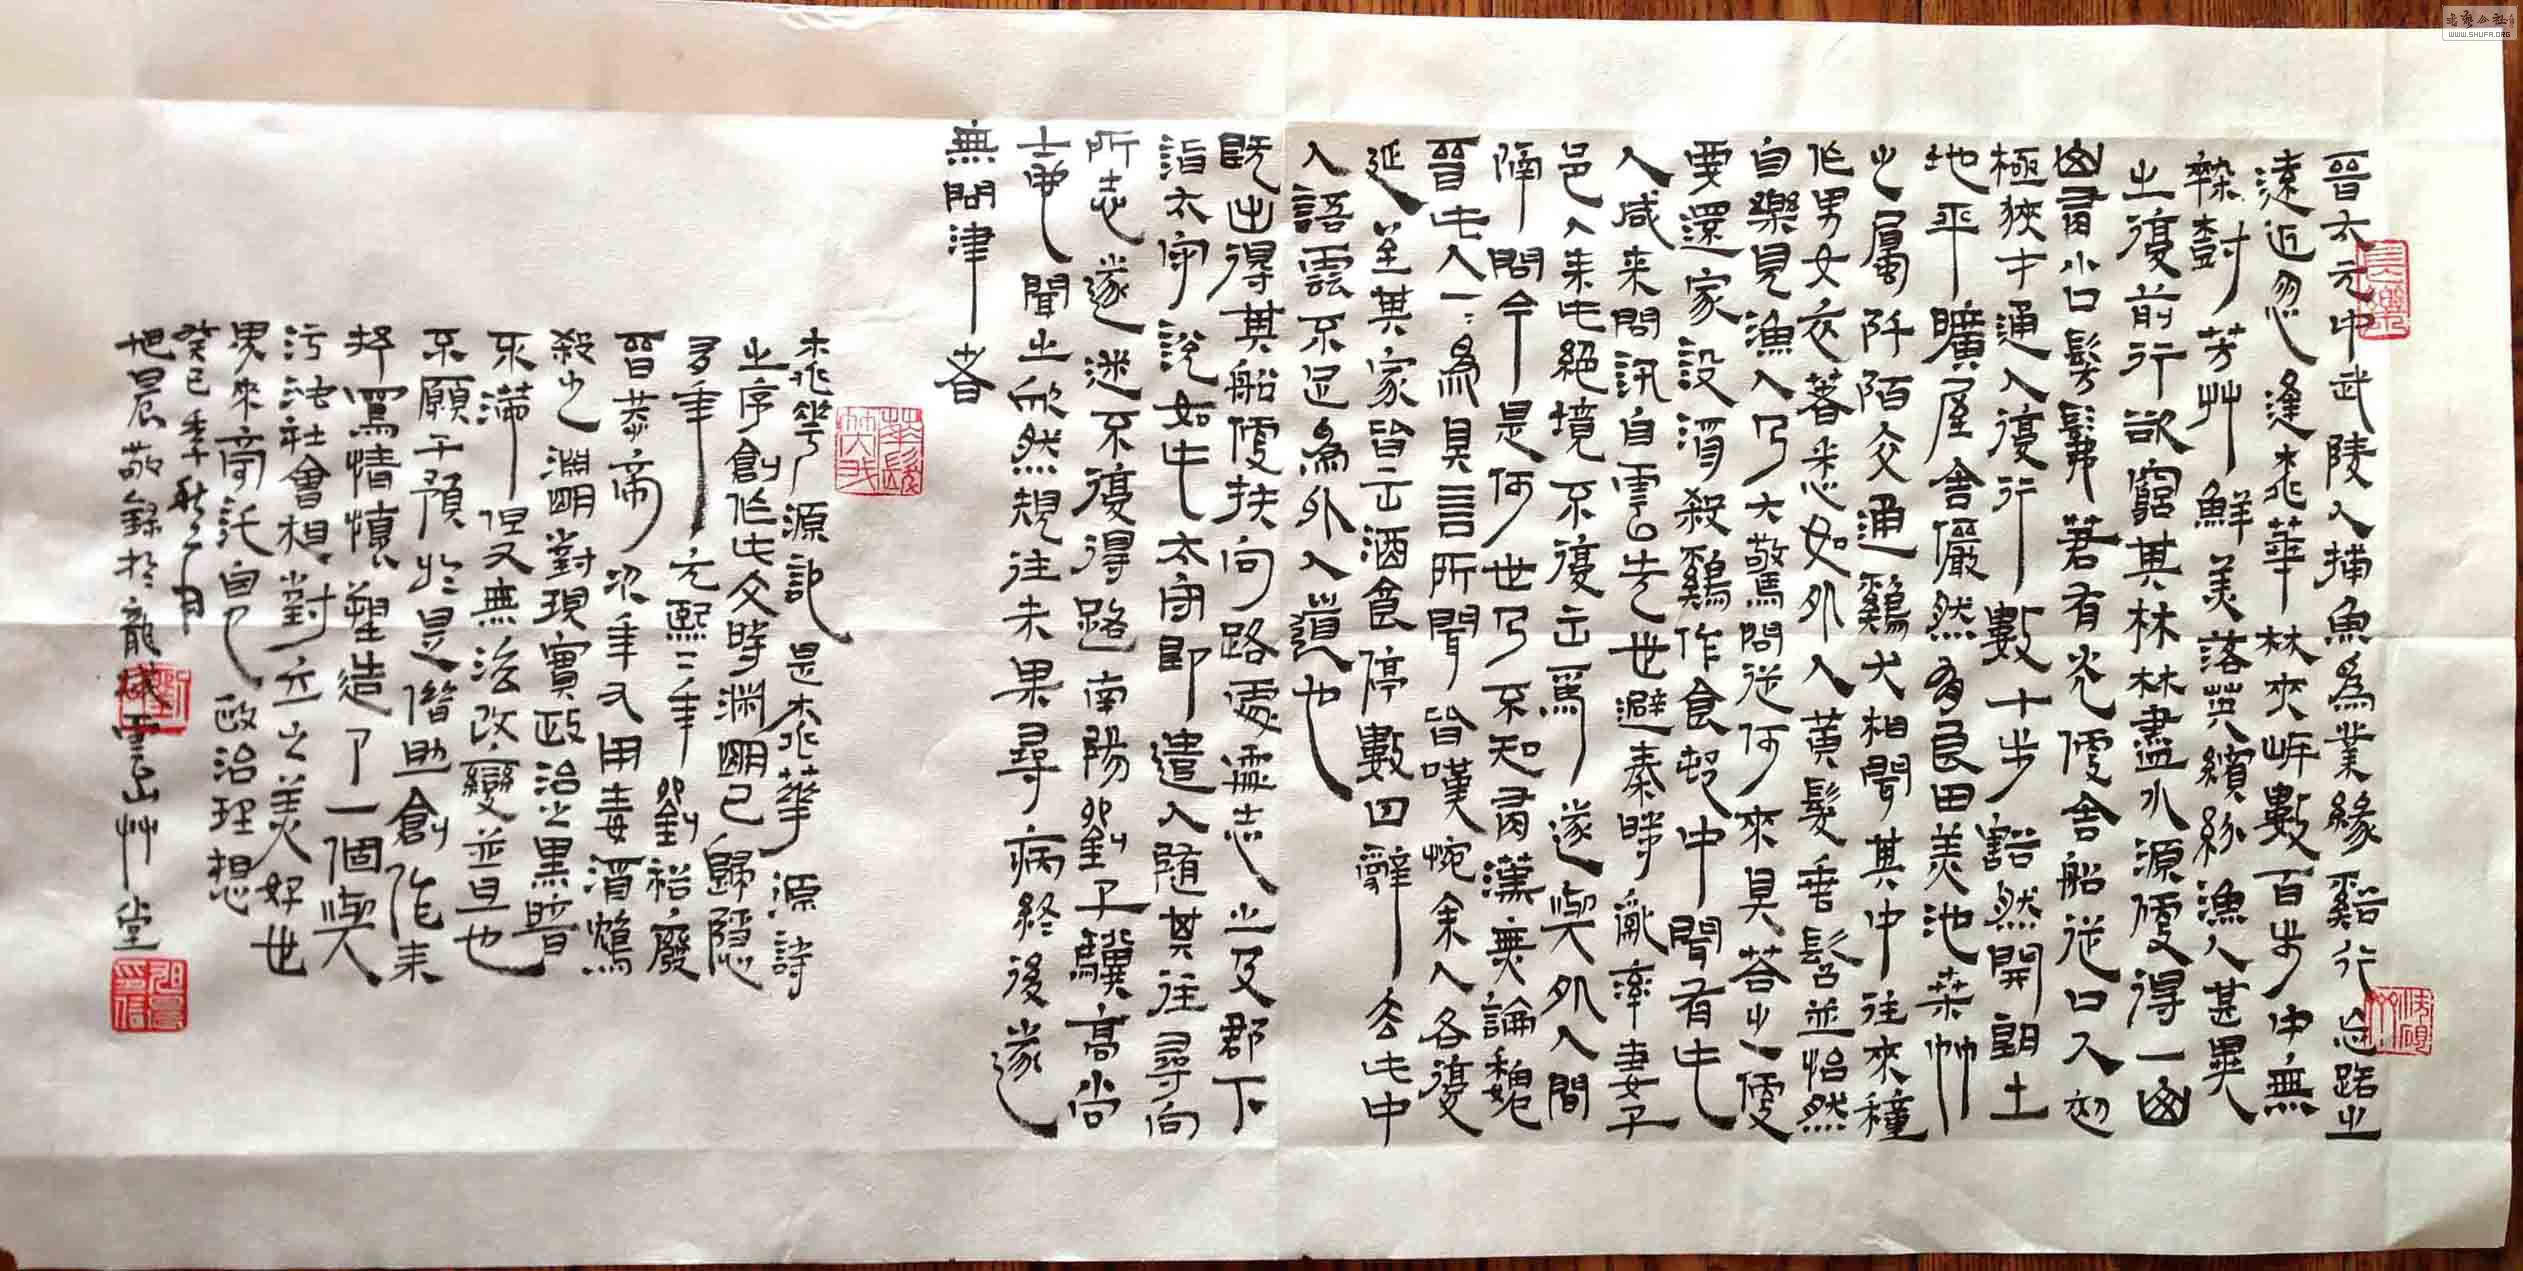 晉太元中武陵人捕魚為業緣谿行忘路之
遠近忽逢桃華林夾岸數百步中無
雜樹芳艸鮮美落英繽紛漁人甚異
之復前行欲窮其林林盡水源便得一山
山有小口髣髴若有光便舍船從口入初
極狹才通人復行數十步豁然開朗土
地平曠屋舍儼然有良田美池桑竹
之屬阡陌交通雞犬相聞其中往來種
作男女衣著悉如外人黃髮垂髫並怡然
自樂見漁人乃大驚問從何來具荅之便
要還家設酒殺雞作食邨中聞有此
人咸来問訊自云先世避秦時亂率妻子
邑人来此絕境不復出焉遂與外人間
隔問今是何世乃不知有漢無論魏
晉此人一為具言所聞皆嘆惋余人各復
延至其家皆出酒食停數日辭去此中
人語雲不足為外人道也
既出得其船便扶向路處處志之及郡下
詣太守說如此太守即遣人随其往尋向
所志遂迷不復得路南陽劉子驥高尚
士也聞之欣然規往未果尋病終後遂
無問津者
桃花源記是桃華源詩
之序創作此文時淵明已歸隱
多年元熙二年劉裕廢
晉恭帝次年又用毒酒鴆
殺之淵明對現實政治之黑暗
不滿但又無法改變並且也
不願干預於是借助創作来
抒寫情懷塑造了一個與
污濁社會相對立之美好世
界來寄託自己政治理想
癸巳季秋之月
旭晨敬錄於龍城雲山艸堂
長樂
書藝公社
WWW.SHUFA.ORG